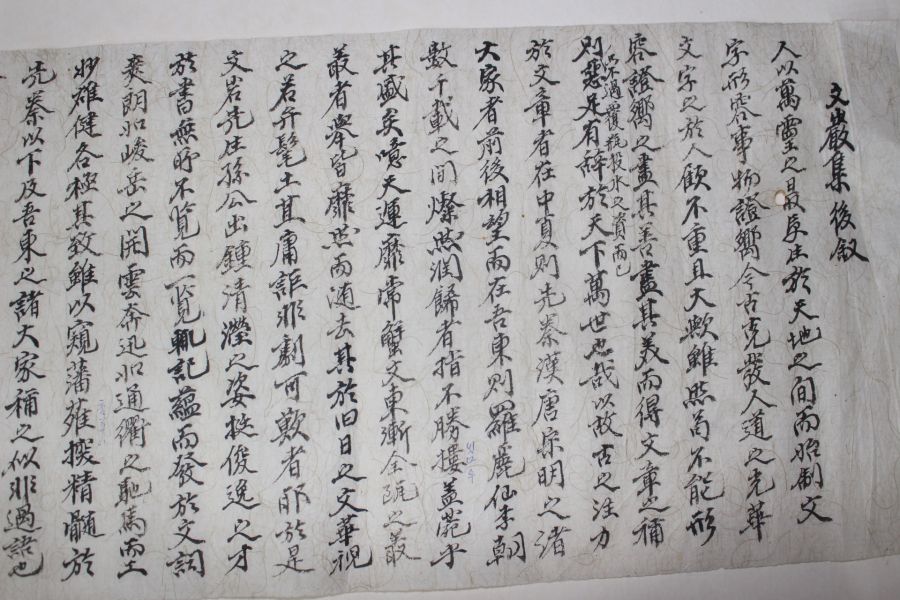 文巖集後敍
人以萬靈之最厚生於天地之間而始制文
字形容事物證嚮今古克發人道之光華
文字之於人顧不重且大歟雖然苟不能形
容證嚮之盡其善盡其美而得文章之稱
則不過覆瓿投水之資而已惡足有辭於天下萬世也哉以故古之注力
於文章者在中夏則先秦漢唐宋明之諸
大家者前後相望而在吾東則羅麗仙李朝
數千載之間燦然潤歸者指不勝摟盖菀乎
其盛矣噫天運靡常蟹文東漸全瓯之叢
叢者擧皆靡然而随去其於旧日之文華視
之若弁髦土苴庸詎非劇可歎者耶於是
文岩先生孫公出鍾清瀅之姿挾俊逸之才
於書無所不覧而一覧輒記蘊而發於文詞
爽朗如峻岳之開雲奔迅如通衢之馳馬而
妙雄健各極其致雖以窺藩蘺拔精髓於
先秦以下及吾東之諸大家稱之似非過語也